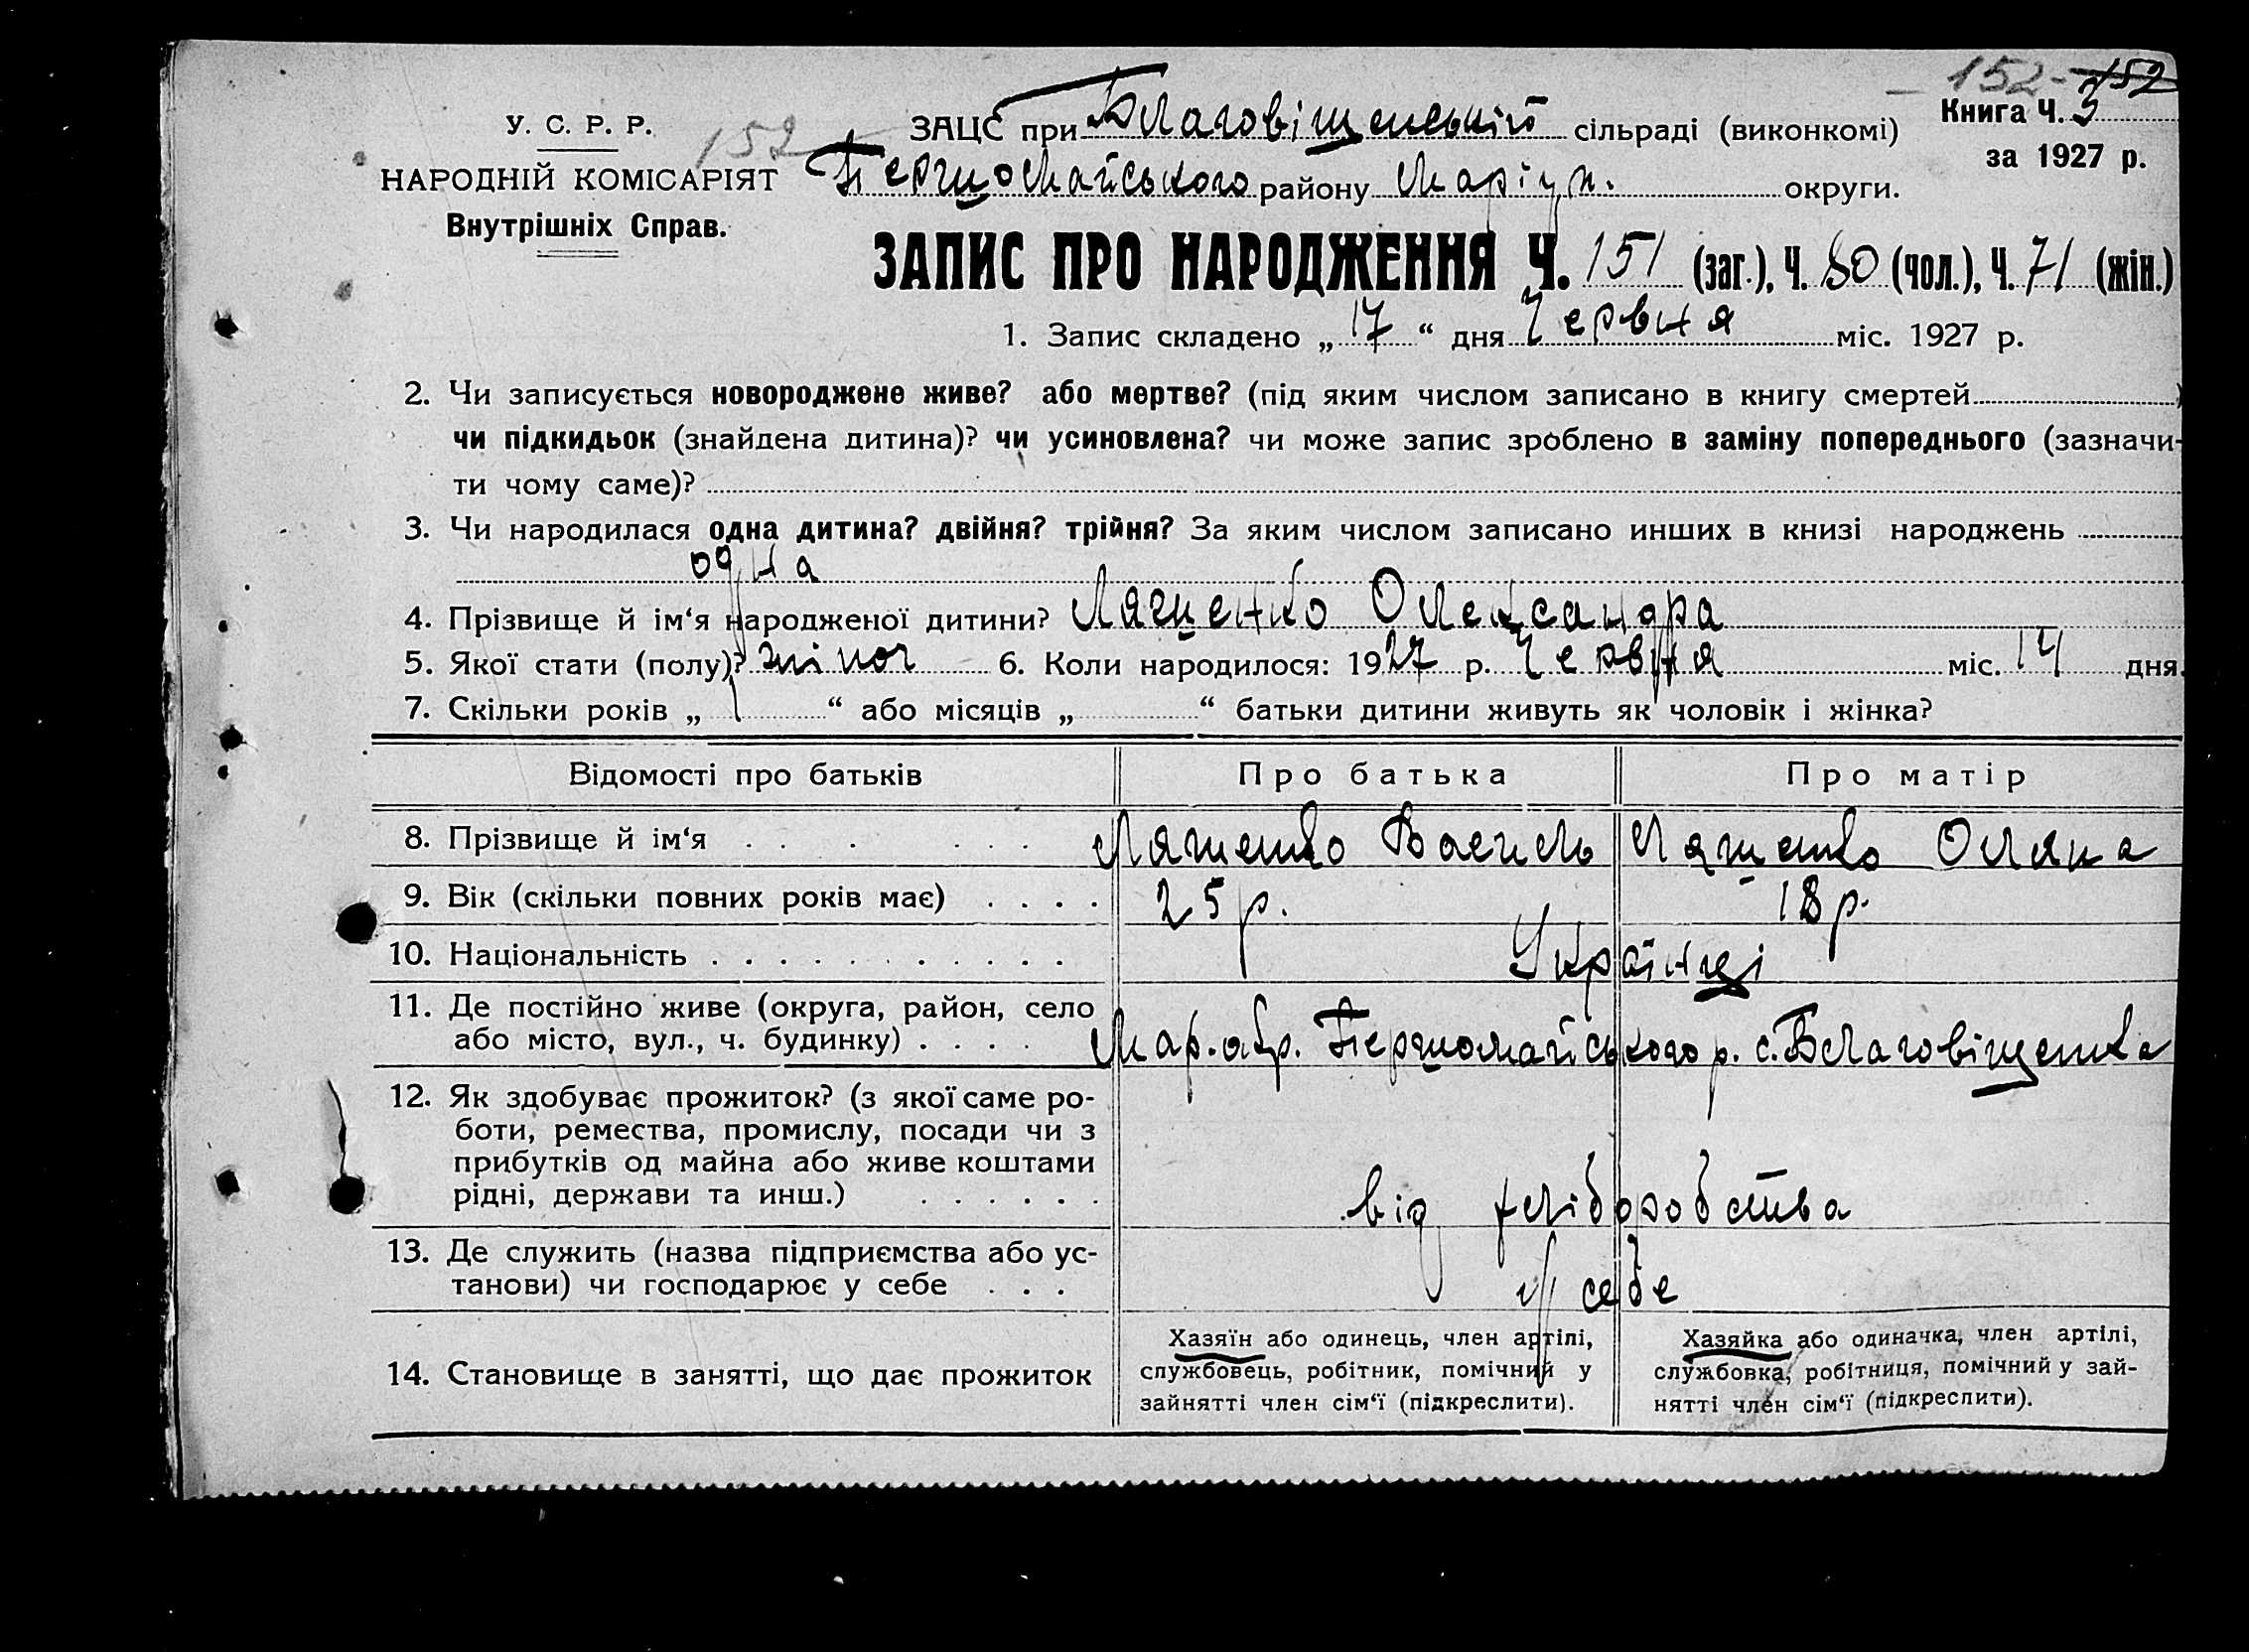 152 - 152
У. С. Р. Р. 152 ЗАЦС при Благовіщенській сільраді (виконкомі) Книга Ч. 3
НАРОДНІЙ КОМІСАРІЯТ Першомайського району Маріуп. округи. за 1927 р.
Внутрішніх Справ.
ЗАПИС ПРО НАРОДЖЕННЯ Ч. 151 (заг.), Ч. 80 (чол.), Ч. 71 (жін.)
1. Запис складено „ 17 “ дня Червня міс. 1927 р.
2. Чи записується новороджене живе? або мертве? (під яким числом записано в книгу смертей )
чи підкидьок (знайдена дитина)? чи усиновлена? чи може запис зроблено в заміну попереднього (зазначи-
ти чому саме)?
3. Чи народилася одна дитина? двійня? трійня? За яким числом записано инших в книзі народжень
одна
4. Прізвище й ім‘я народженої дитини? Лященко Олександра
5. Якої стати (полу)? жіноч 6. Коли народилося: 1927 р. Червня міс. 14 дня.
7. Скільки років „ 1 “ або місяців „ “ батьки дитини живуть як чоловік і жінка?
Відомості про батьків Про батька Про матір
8. Прізвище й ім‘я . . . . . . Лященко Василь Лященко Оляна
9. Вік (скільки повних років має) . . . . 25 р. 18 р.
10. Національність . . . . . . . . . . . Українці
11. Де постійно живе (округа, район, село
або місто, вул., ч. будинку) . . . . Мар. окр. Першомайського р. с. Благовіщенка
12. Як здобуває прожиток? (з якої саме ро-
боти, ремества, промислу, посади чи з
прибутків од майна або живе коштами
рідні, держави та инш.) . . . . . . від хліборобства
13. Де служить (назва підприємства або ус-
танови) чи господарює у себе . . . у себе
14. Становище в занятті, що дає прожиток
Хазяїн або одинець, член артілі,
службовець, робітник, помічний у
зайнятті член сім‘ї (підкреслити).
Хазяйка або одиначка, член артілі,
службовка, робітниця, помічний у зай-
нятті член сім‘ї (підкреслити).